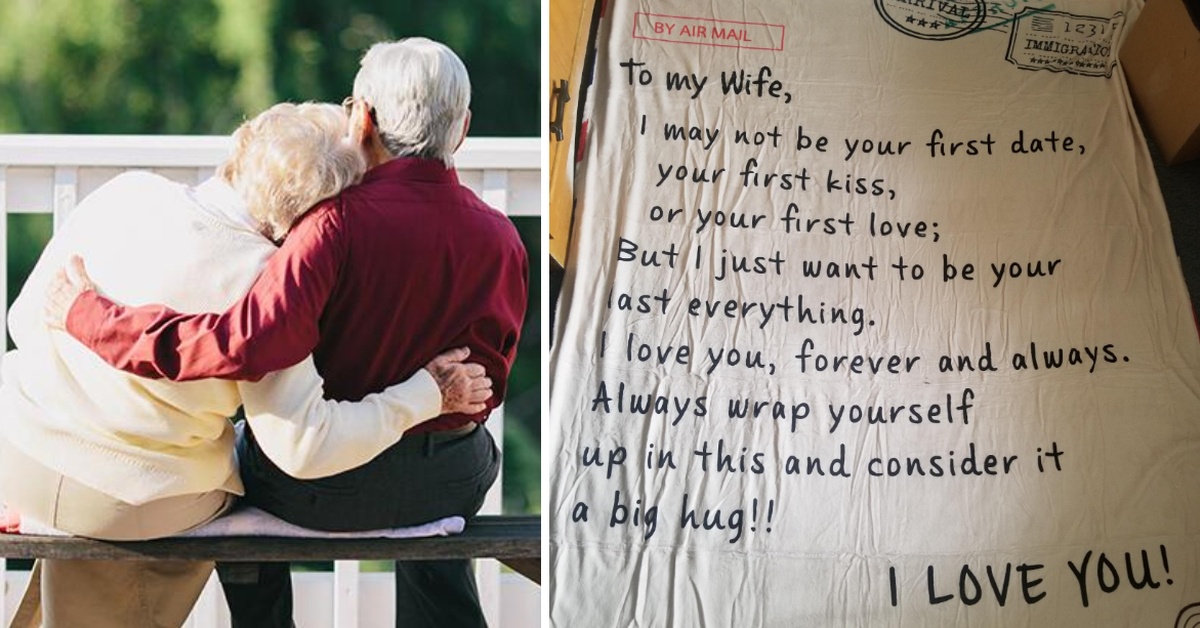 BY AIR MAIL
To my Wife,
I may not be your first date,
your first kiss,
or your first love;
But I just want to be your
last everything.
I love you, forever and always.
Always wrap yourself
up in this and consider it
a big hug!!
I LOVE YOU!